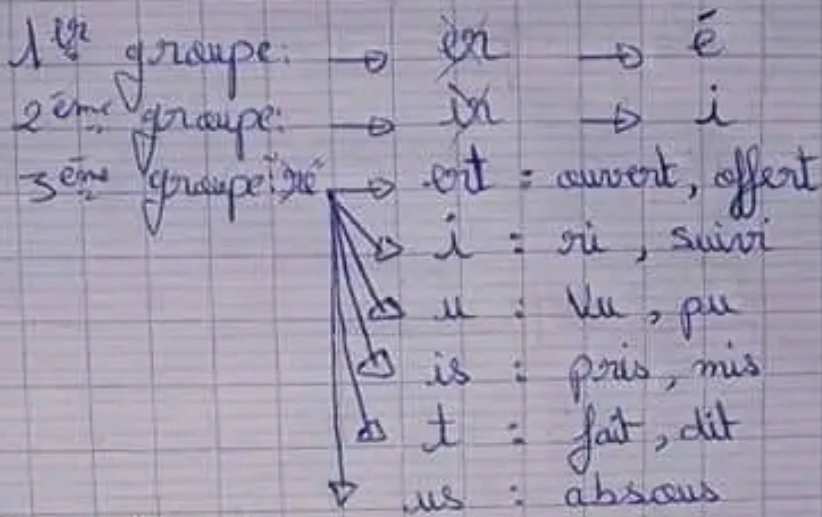 1er groupe: → er → é
2ème groupe: → ir → i
3ème groupe: "re" → ert : ouvert, offert
i : ri, suivi
u : Vu, pu
is : pris, mis
t : fait, dit
us : absous